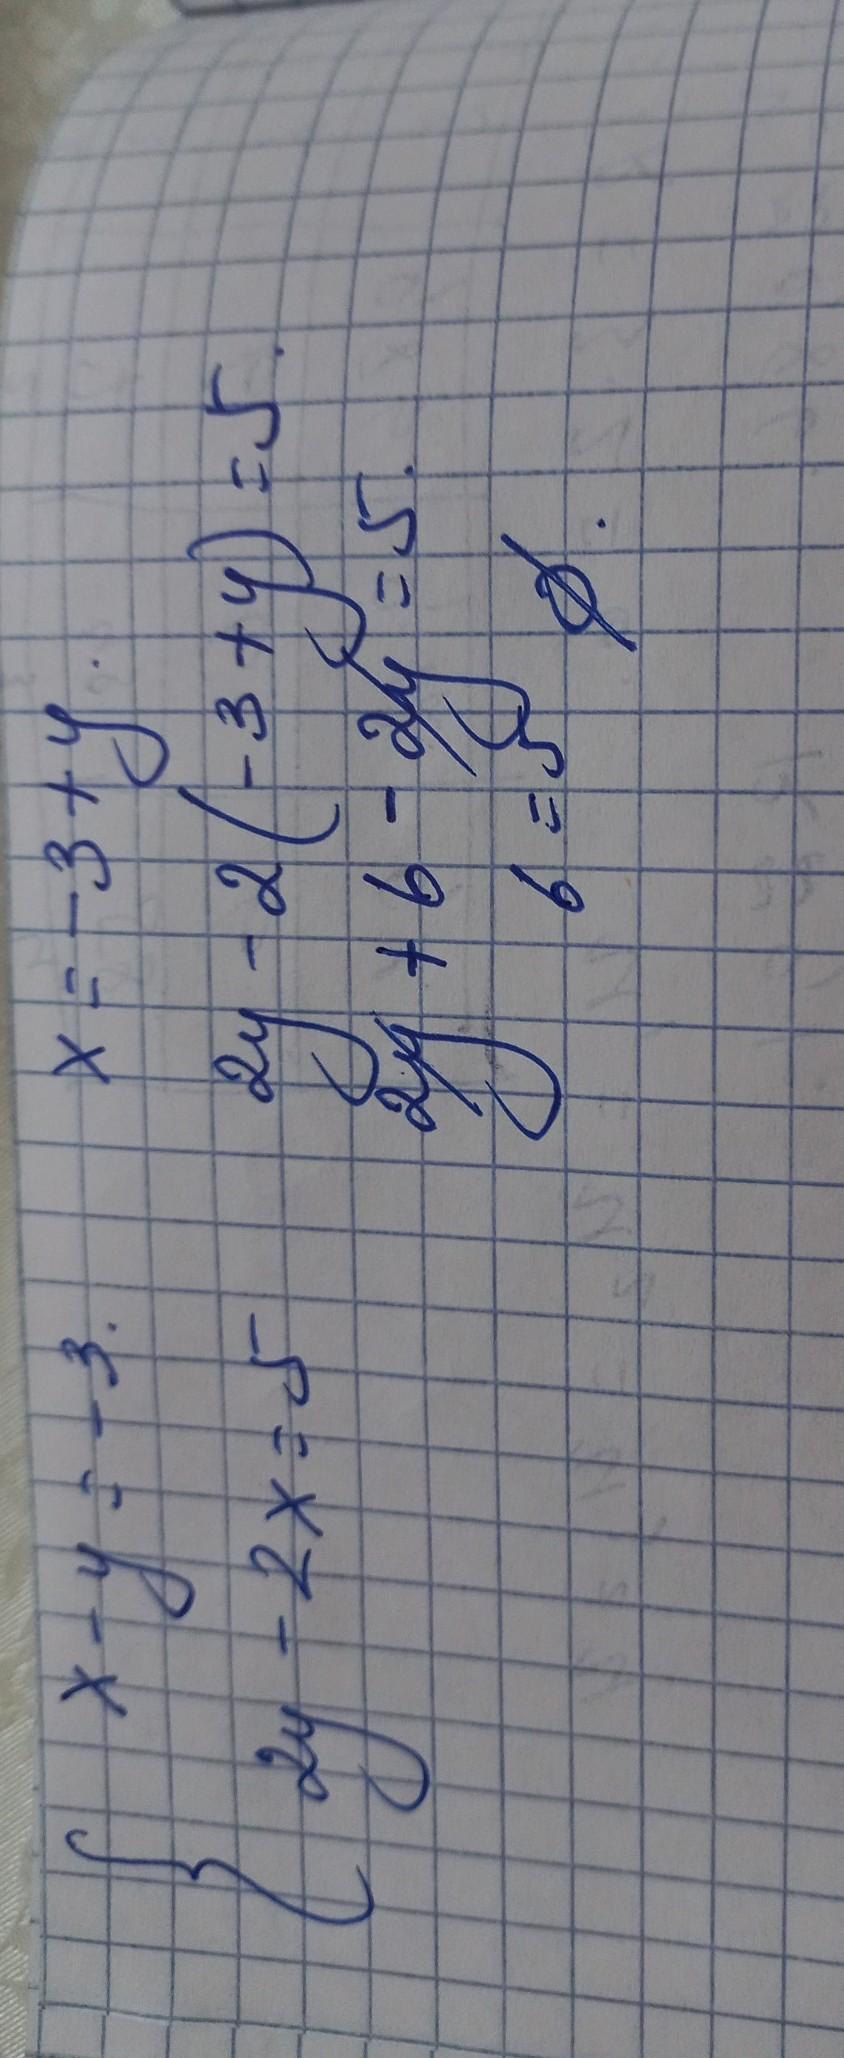 x - y = -3.
2y - 2x = 5
x = -3 + y.
2y - 2(-3 + y) = 5.
2y + 6 - 2y = 5.
6 = 5 ∅.